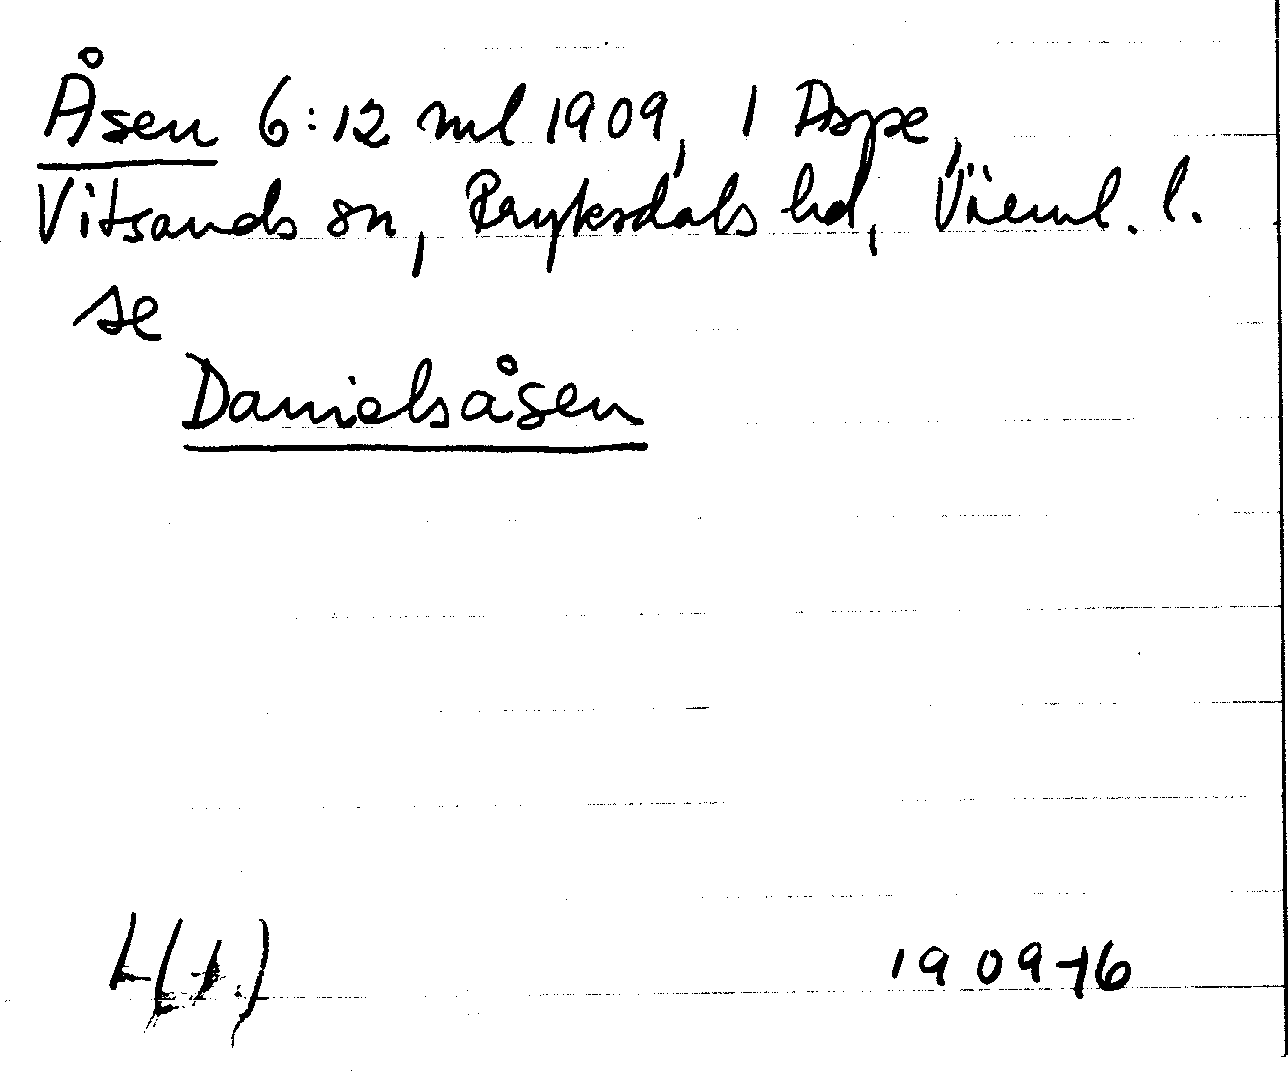 Åsen 6:12 ml 1909, 1 Aspe,
Vitsands sn, Fryksdals hd, Värml. l.
se
Danielsåsen
1909-16